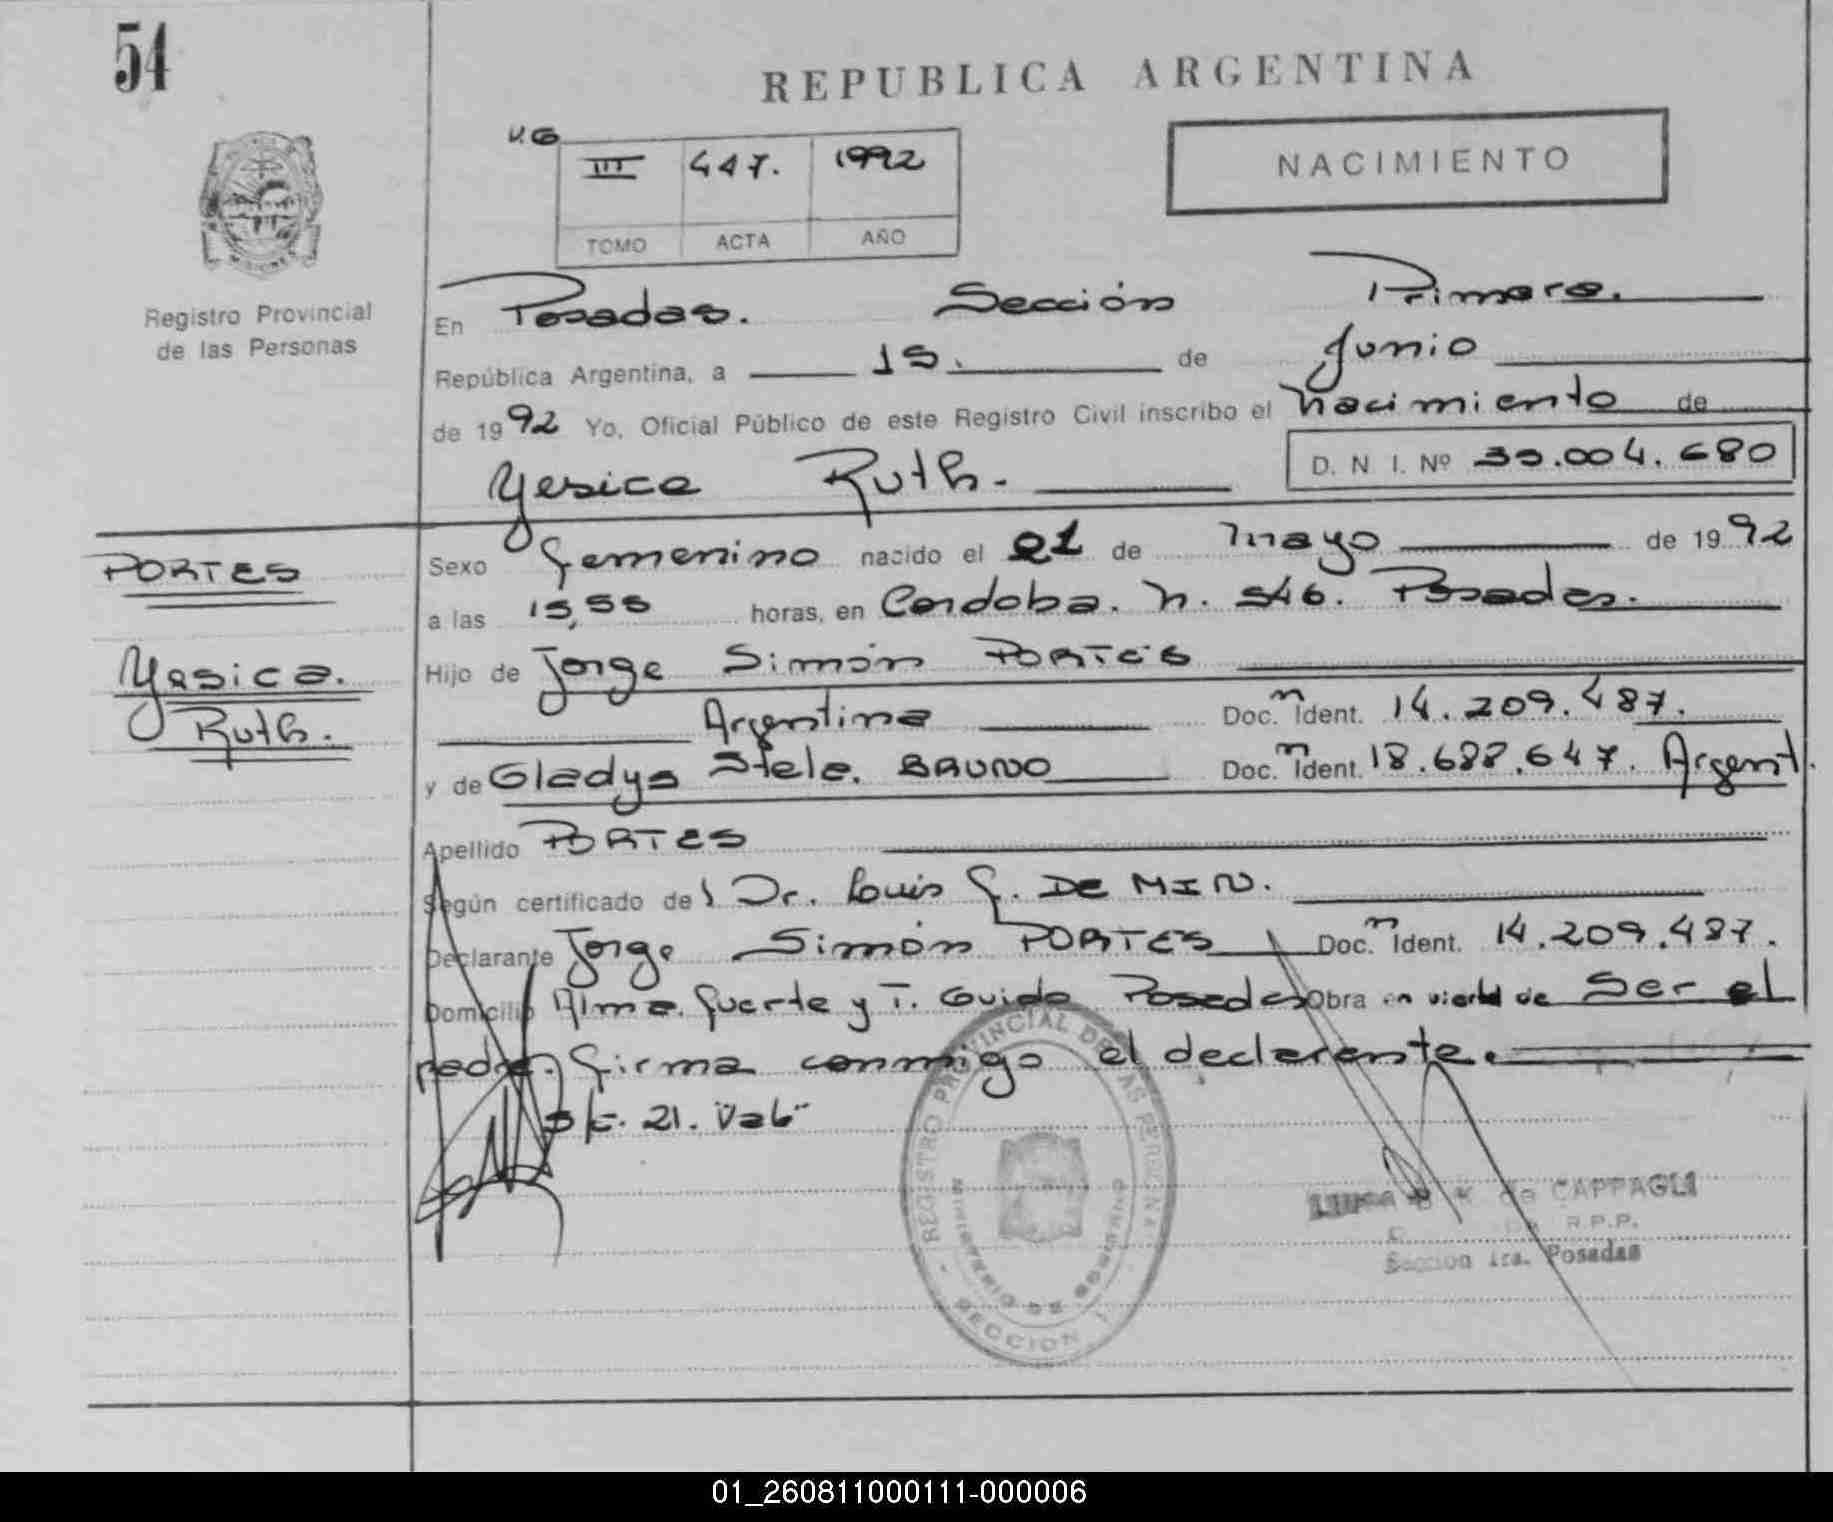 54
REPUBLICA ARGENTINA
V.G
III 447. 1992
TOMO ACTA AÑO
NACIMIENTO
Registro Provincial
de las Personas
En Posadas. Sección Primera.
República Argentina, a 15. de Junio
de 1992 Yo, Oficial Público de este Registro Civil inscribo el nacimiento de
Yesica Ruth. D. N. I. Nº 39.004.680
PORTES
Yesica.
Ruth.
Sexo femenino nacido el 21 de mayo de 1992
a las 15,55 horas, en Cordoba. n. 546. Posadas.
Hijo de Jorge Simón PORTES
Argentina Doc. n Ident. 14.209.487.
y de Gladys Stela. BRUNO Doc. n Ident. 18.688.647. Argent.
Apellido PORTES
Según certificado de l Dr. Luis F. DE MIN.
Declarante Jorge Simón PORTES Doc. n Ident. 14.209.487.
Domicilio Alma fuerte y T. Guido Posadas Obra en virtud de Ser el
padre. firma conmigo el declarante.
S/E. 21. Vale
REGISTRO PROVINCIAL DE LAS PERSONAS
MINISTERIO DE GOBIERNO
SECCION 1
de CAPPAGLI
R.P.P.
Sección 1ra. Posadas
01_260811000111-000006